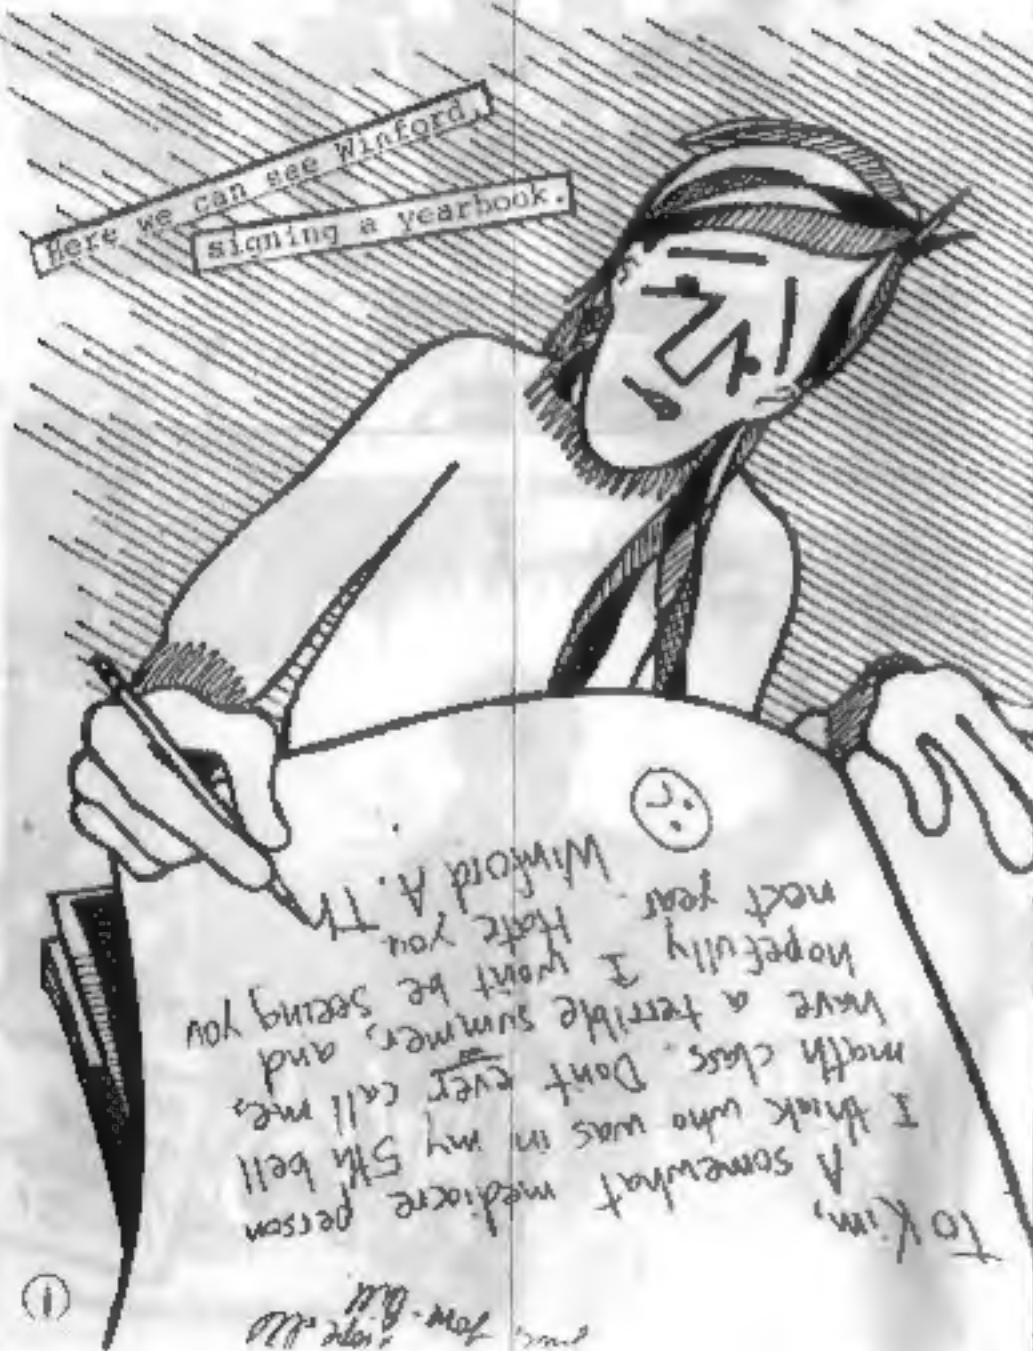 Here we can see Winford,
signing a yearbook.
To Kim,
A somewhat mediocre person
I think who was in my 5th bell
math class. Don't ever call me.
have a terrible summer, and
hopefully I won't be seeing you
next year. Hate you
Winford A. Th